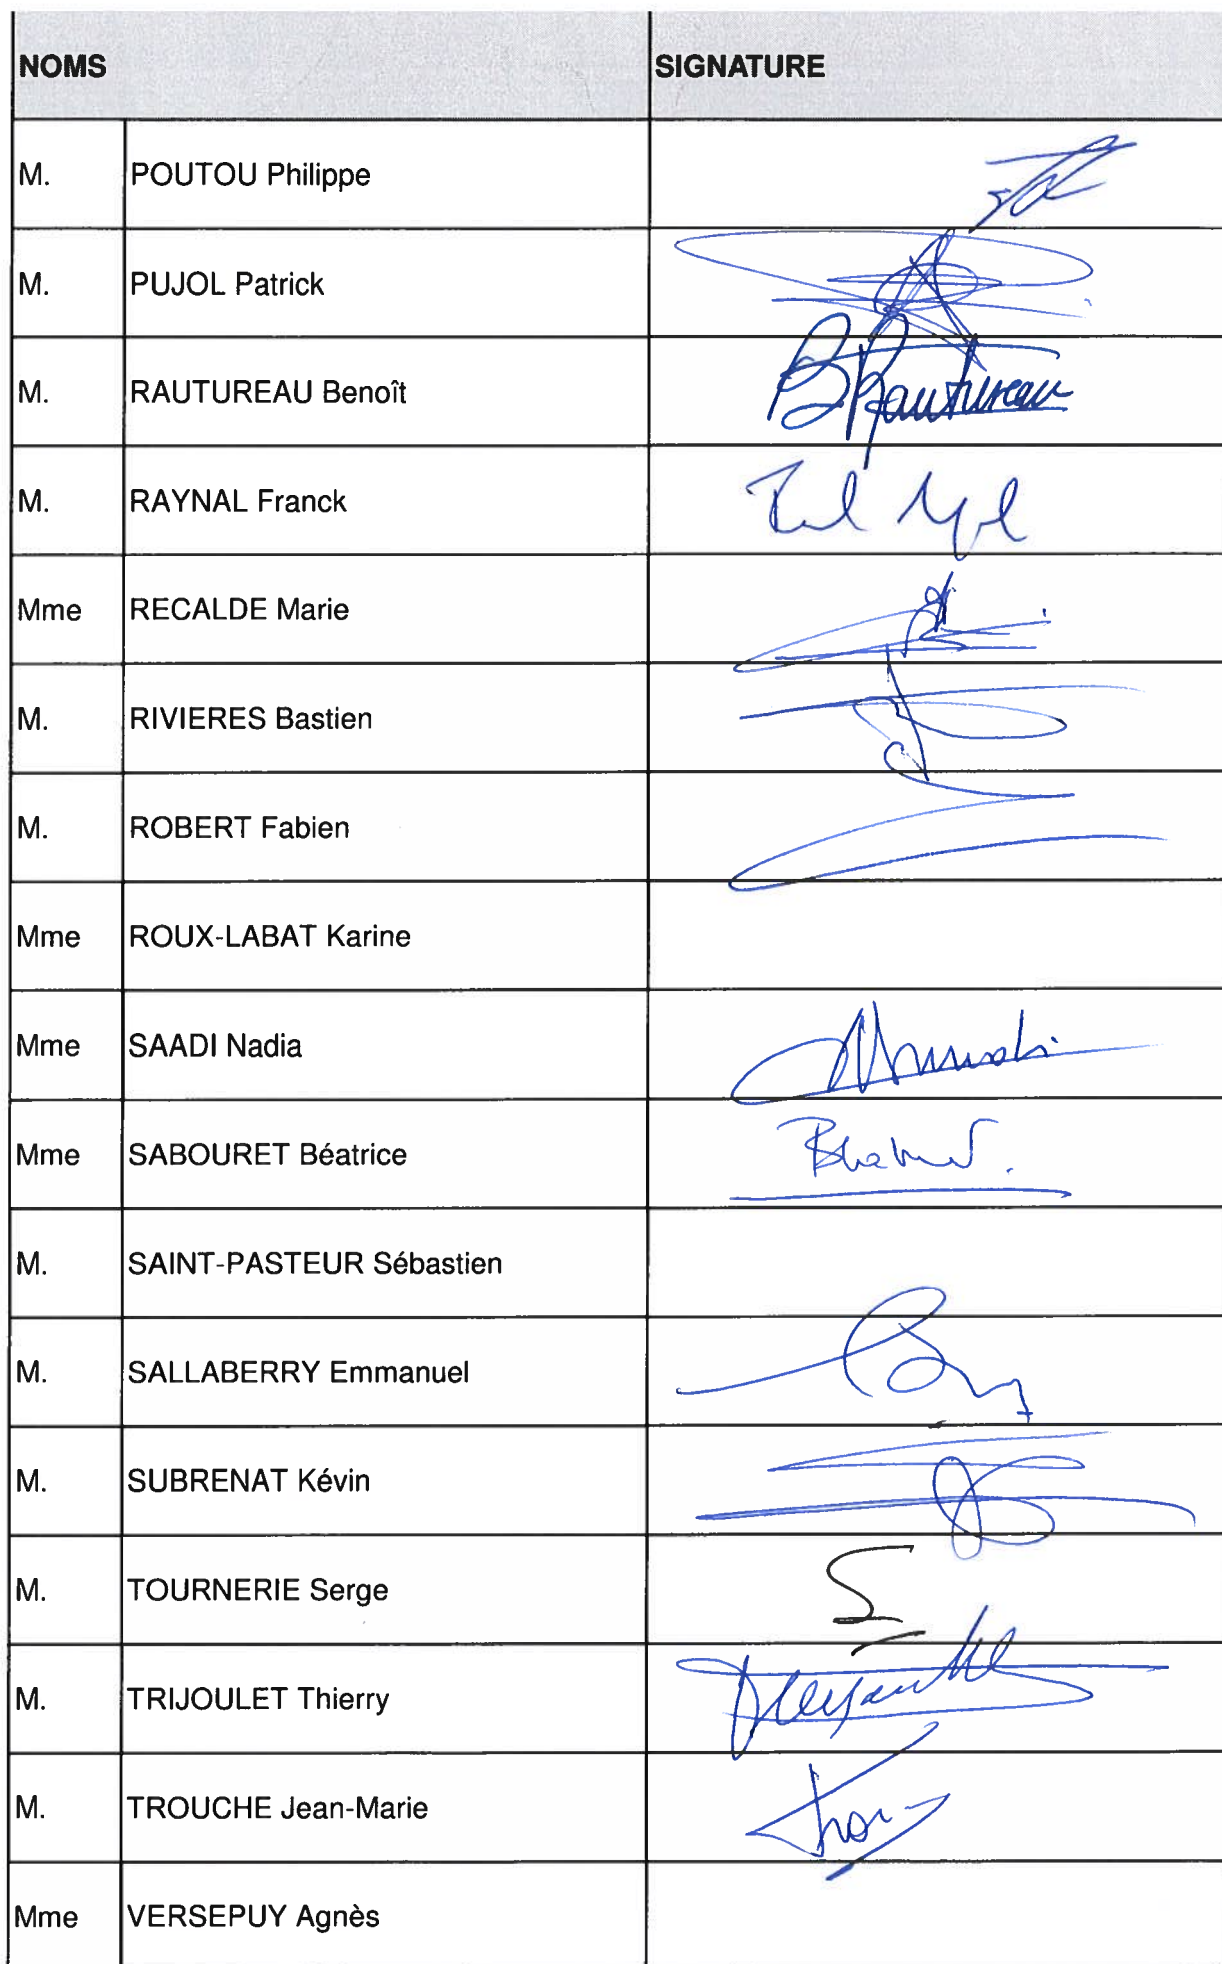 NOMS SIGNATURE
M. POUTOU Philippe
M. PUJOL Patrick
M. RAUTUREAU Benoît BRautureau
M. RAYNAL Franck
Mme RECALDE Marie
M. RIVIERES Bastien
M. ROBERT Fabien
Mme ROUX-LABAT Karine
Mme SAADI Nadia
Mme SABOURET Béatrice
M. SAINT-PASTEUR Sébastien
M. SALLABERRY Emmanuel
M. SUBRENAT Kévin
M. TOURNERIE Serge
M. TRIJOULET Thierry
M. TROUCHE Jean-Marie
Mme VERSEPUY Agnès